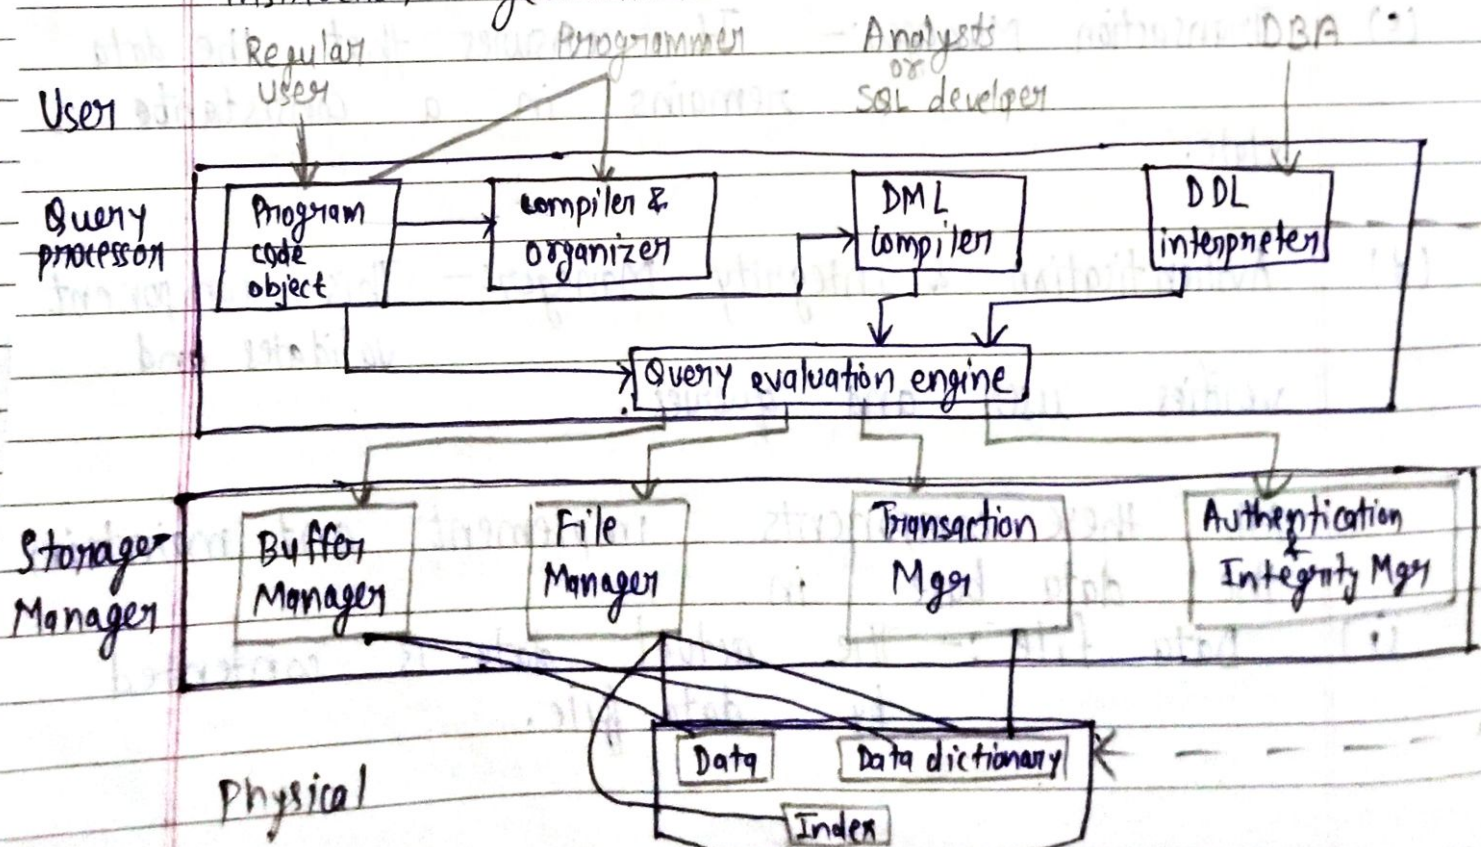 Regular
user
Programmer
Analysts
or
SQL develper
DBA
User
Query
processor
Program
code
object
compiler &
organizer
DML
compiler
DDL
interpreter
Query evaluation engine
Storager
Manager
Buffer
Manager
File
Manager
Transaction
Mgr
Authentication
&
Integrity Mgr
Physical
Data
Data dictionary
Index